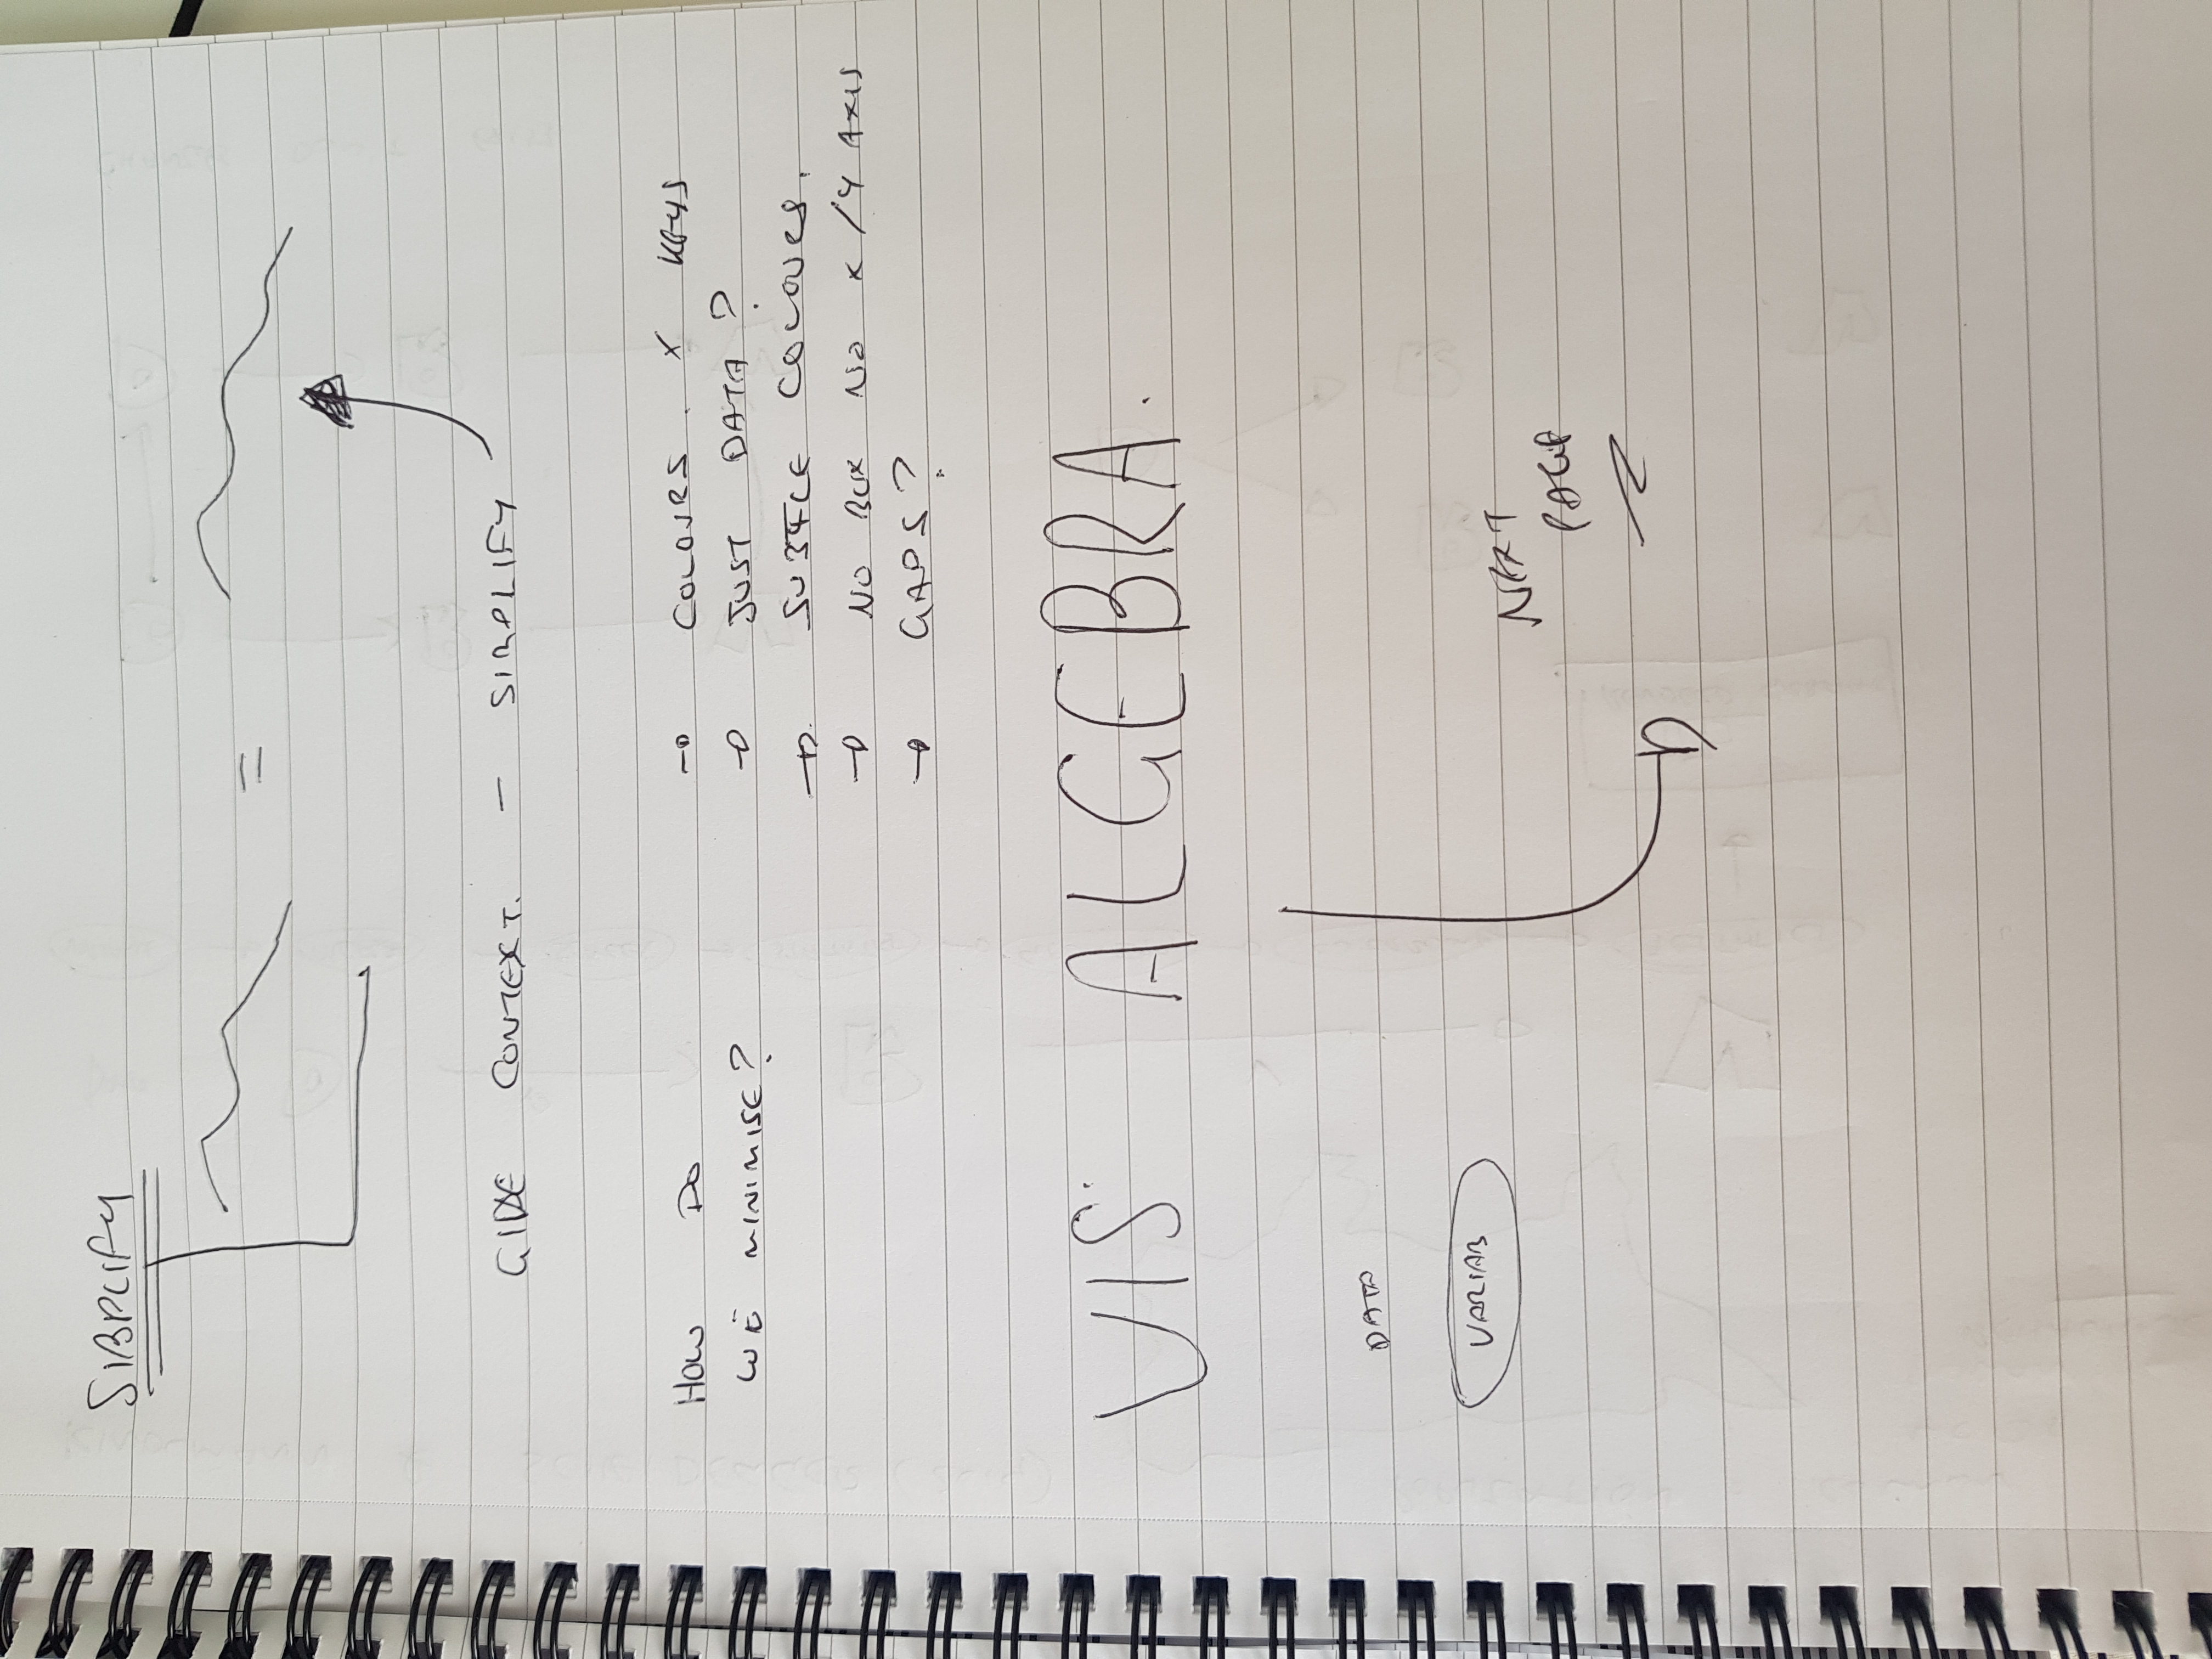 SIMPLIFY
=
GIVE CONTEXT. - SIMPLIFY
HOW DO
WE MINIMISE?
→ COLOURS. X KEYS
→ JUST DATA?
→ SUBTLE COLOURS.
→ NO BOX NO X/Y AXIS
→ GAPS?
VIS. ALGEBRA.
DATA
VARIAB
NEXT
PAGE